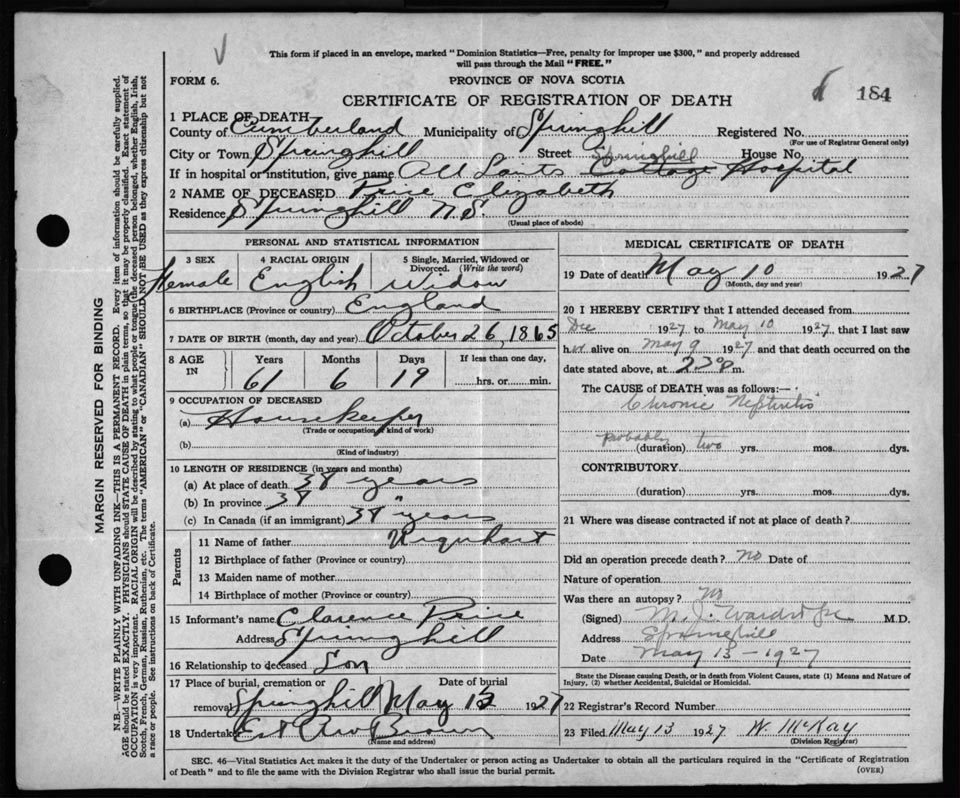 This form if placed in an envelope, marked "Dominion Statistics—Free, penalty for improper use $300," and properly addressed
will pass through the Mail "FREE."
FORM 6.
PROVINCE OF NOVA SCOTIA
184
CERTIFICATE OF REGISTRATION OF DEATH
1 PLACE OF DEATH
County of Cumberland Municipality of Springhill Registered No.
(For use of Registrar General only)
City or Town Springhill Street Springhill House No.
If in hospital or institution, give name All Saints Cottage Hospital
2 NAME OF DECEASED Price Elizabeth
Residence Springhill N.S.
(Usual place of abode)
PERSONAL AND STATISTICAL INFORMATION
3 SEX 4 RACIAL ORIGIN 5 Single, Married, Widowed or Divorced. (Write the word)
Female English Widow
6 BIRTHPLACE (Province or country) England
7 DATE OF BIRTH (month, day and year) October 26, 1865
8 AGE IN Years Months Days If less than one day,
61 6 19 hrs. or min.
9 OCCUPATION OF DECEASED
(a) Housekeeper
(Trade or occupation, if kind of work)
(b)
(Kind of industry)
10 LENGTH OF RESIDENCE (in years and months)
(a) At place of death 38 years
(b) In province 38 "
(c) In Canada (if an immigrant) 38 years
Parents
11 Name of father Urquhart
12 Birthplace of father (Province or country)
13 Maiden name of mother
14 Birthplace of mother (Province or country)
15 Informant's name Clarence Price
Address Springhill
16 Relationship to deceased Son
17 Place of burial, cremation or removal Date of burial
Springhill May 13 1927
18 Undertaker Brown
(Name and address)
MEDICAL CERTIFICATE OF DEATH
19 Date of death May 10 1927
(Month, day and year)
20 I HEREBY CERTIFY that I attended deceased from
Dec 1927 to May 10 1927, that I last saw
her alive on May 9 1927 and that death occurred on the
date stated above, at m.
The CAUSE of DEATH was as follows:—
Chronic
probably (duration) two yrs. mos. dys.
CONTRIBUTORY
(duration) yrs. mos. dys.
21 Where was disease contracted if not at place of death?
Did an operation precede death? no Date of
Nature of operation
Was there an autopsy? no
(Signed) M. J. M.D.
Address Springhill
Date May 13 - 1927
State the Disease causing Death, or in death from Violent Causes, state (1) Means and Nature of
Injury, (2) whether Accidental, Suicidal or Homicidal.
22 Registrar's Record Number
23 Filed May 13 1927 W. McKay
(Division Registrar)
SEC. 46—Vital Statistics Act makes it the duty of the Undertaker or person acting as Undertaker to obtain all the particulars required in the "Certificate of Registration
of Death" and to file the same with the Division Registrar who shall issue the burial permit.
(OVER)
MARGIN RESERVED FOR BINDING
N.B.—WRITE PLAINLY WITH UNFADING INK—THIS IS A PERMANENT RECORD. Every item of information should be carefully supplied.
AGE should be stated EXACTLY. PHYSICIANS should STATE CAUSE OF DEATH in plain terms, so that it may be properly classified. Exact statement of
OCCUPATION is very important. RACIAL ORIGIN will be described by stating to what people or tongue the deceased person belonged, whether English, Irish,
Scotch, French, German, Russian, Ruthenian, etc. The terms "AMERICAN" or "CANADIAN" SHOULD NOT BE USED as they express citizenship but not
a race or people. See instructions on back of Certificate.